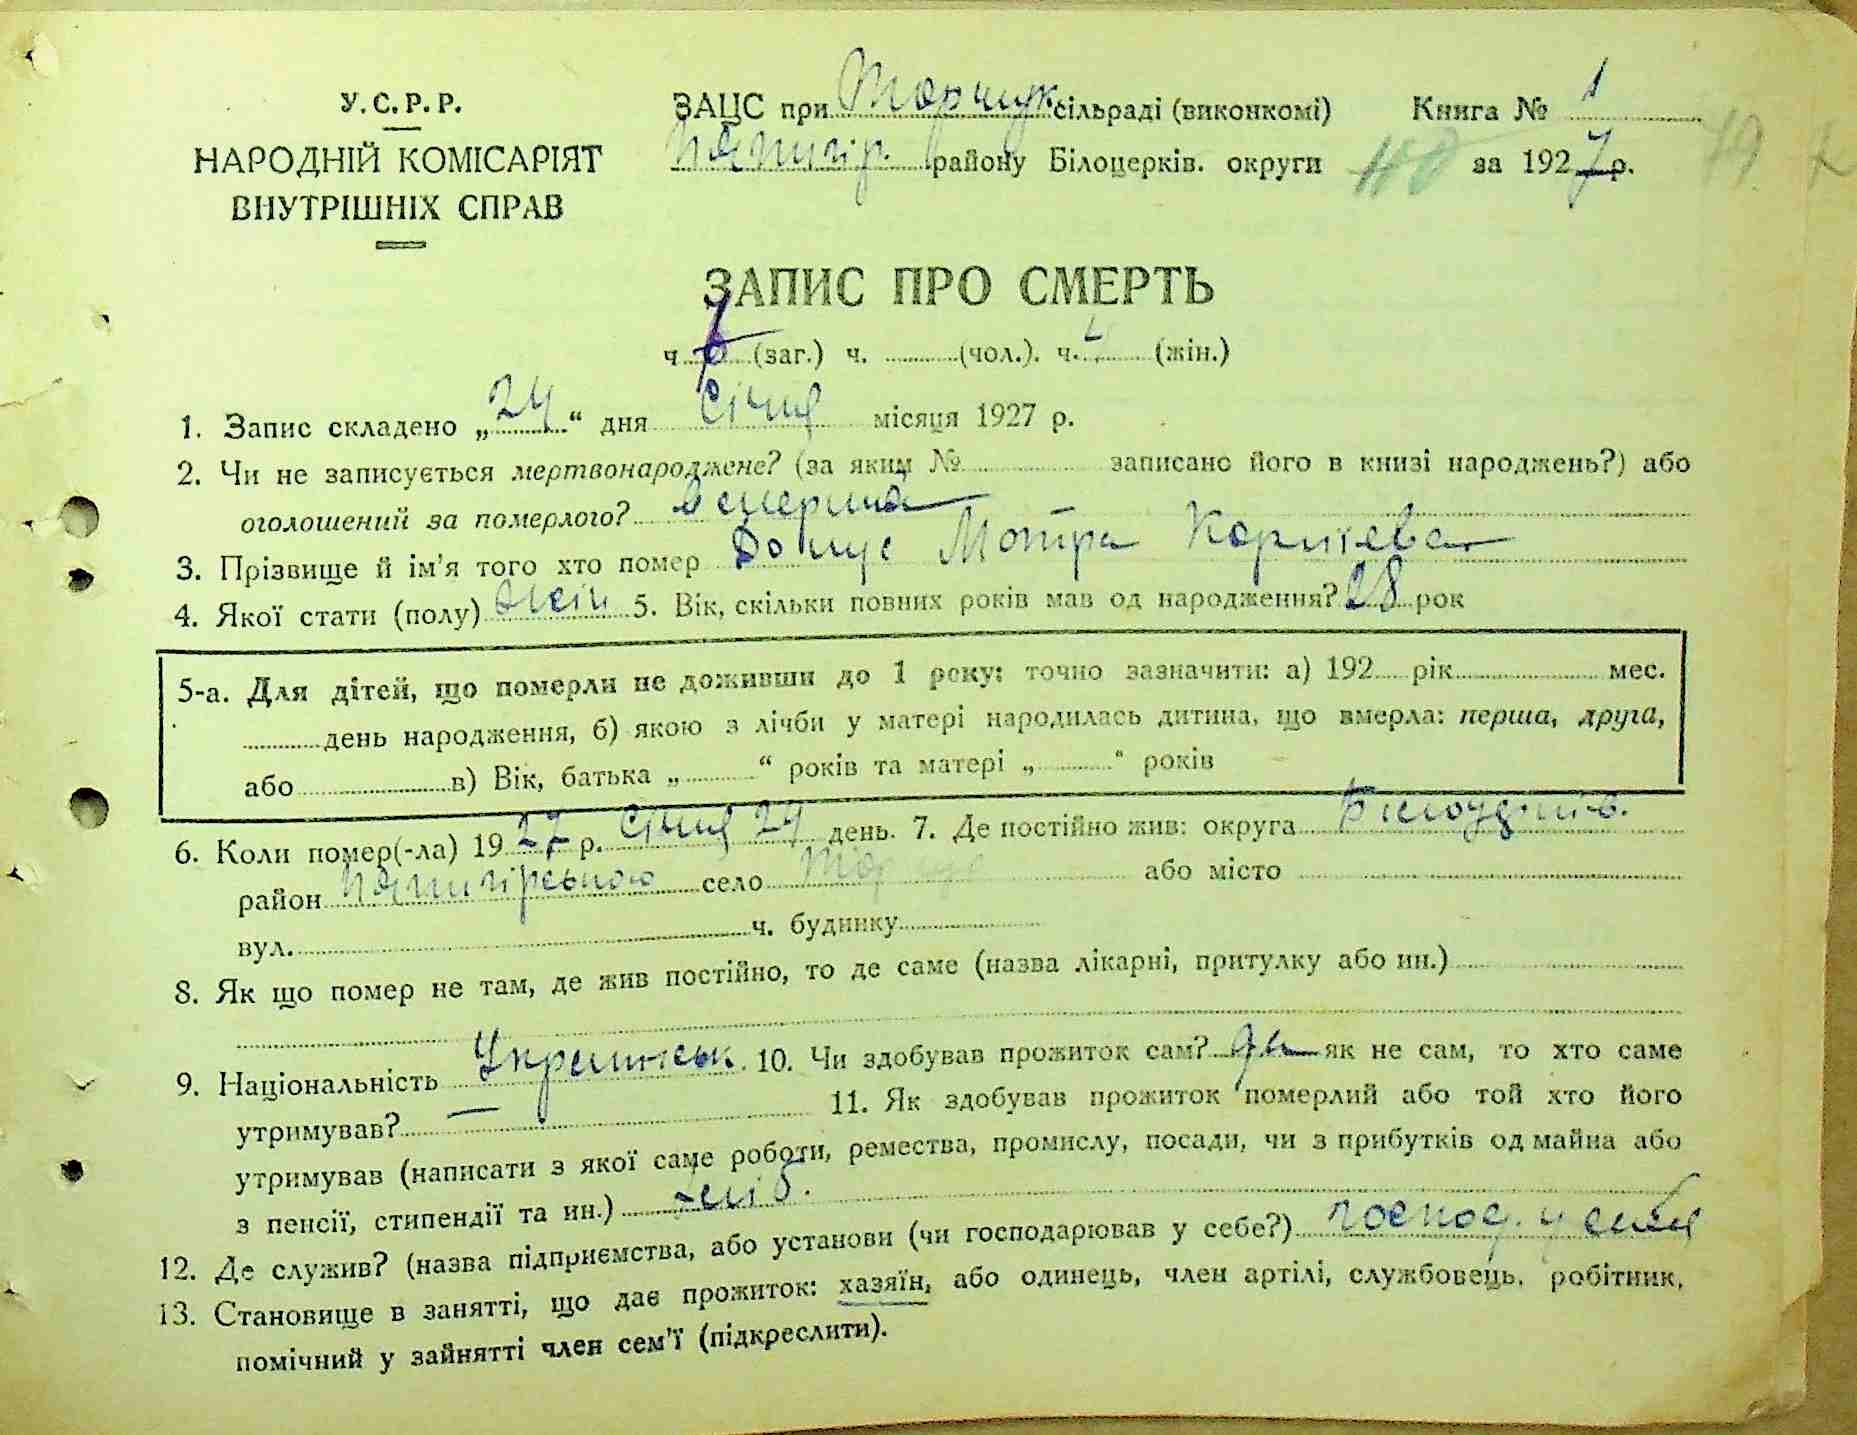 У.С.Р.Р.
НАРОДНІЙ КОМІСАРІЯТ
ВНУТРІШНІХ СПРАВ
ЗАЦС при Торчицк сільраді (виконкомі) Книга № 1
Пятигір. району Білоцерків. округи 40 за 1927 р. 79
ЗАПИС ПРО СМЕРТЬ
ч. (заг.) ч. (чол.). ч. (жін.)
1. Запис складено „24“ дня Січня місяця 1927 р.
2. Чи не записується мертвонароджене? (за яким № записано його в книзі народжень?) або
оголошений за померлого?
3. Прізвище й ім'я того хто помер Мотра
4. Якої стати (полу) жін 5. Вік, скільки повних років мав од народження? 28 рок
5-а. Для дітей, що померли не доживши до 1 року: точно зазначити: а) 192 рік мес.
день народження, б) якою з лічби у матері народилась дитина, що вмерла: перша, друга,
або в) Вік, батька „ “ років та матері „ “ років
6. Коли помер(-ла) 1927 р. Січня 24 день. 7. Де постійно жив: округа
район Пятигірською село або місто
вул. ч. будинку
8. Як що помер не там, де жив постійно, то де саме (назва лікарні, притулку або ин.)
9. Національність 10. Чи здобував прожиток сам? да як не сам, то хто саме
утримував? — 11. Як здобував прожиток померлий або той хто його
утримував (написати з якої саме роботи, ремества, промислу, посади, чи з прибутків од майна або
з пенсії, стипендії та ин.)
12. Де служив? (назва підприємства, або установи (чи господарював у себе?) господ. у себе
13. Становище в занятті, що дає прожиток: хазяїн, або одинець, член артілі, службовець, робітник,
помічний у зайнятті член сем'ї (підкреслити).